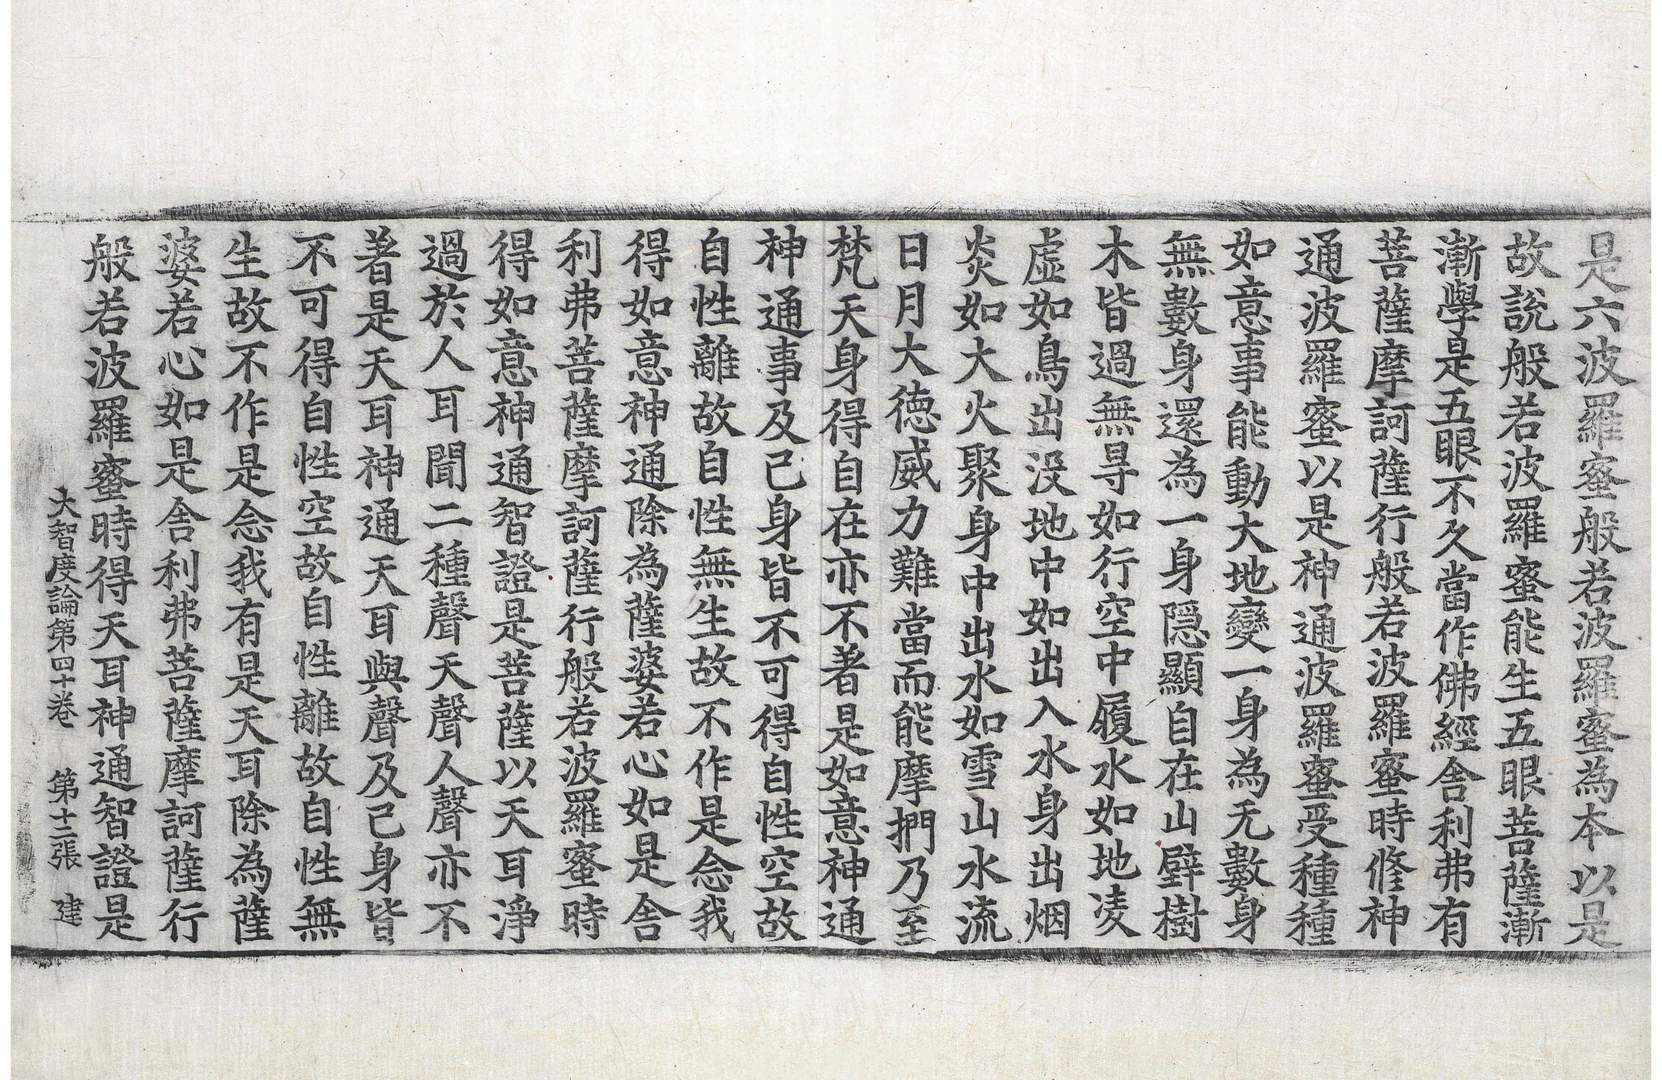 是六波羅蜜般若波羅蜜為本以是
故說般若波羅蜜能生五眼菩薩漸
漸學是五眼不久當作佛經舍利弗有
菩薩摩訶薩行般若波羅蜜時修神
通波羅蜜以是神通波羅蜜受種種
如意事能動大地變一身為无數身
無數身還為一身隱顯自在山壁樹
木皆過無㝵如行空中履水如地凌
虛如鳥出没地中如出入水身出烟
炎如大火聚身中出水如雪山水流
日月大德威力難當而能摩捫乃至
梵天身得自在亦不著是如意神通
神通事及己身皆不可得自性空故
自性離故自性無生故不作是念我
得如意神通除為薩婆若心如是舍
利弗菩薩摩訶薩行般若波羅蜜時
得如意神通智證是菩薩以天耳淨
過於人耳聞二種聲天聲人聲亦不
著是天耳神通天耳與聲及己身皆
不可得自性空故自性離故自性無
生故不作是念我有是天耳除為薩
婆若心如是舍利弗菩薩摩訶薩行
般若波羅蜜時得天耳神通智證是
大智度論第四十卷 第十二張 建